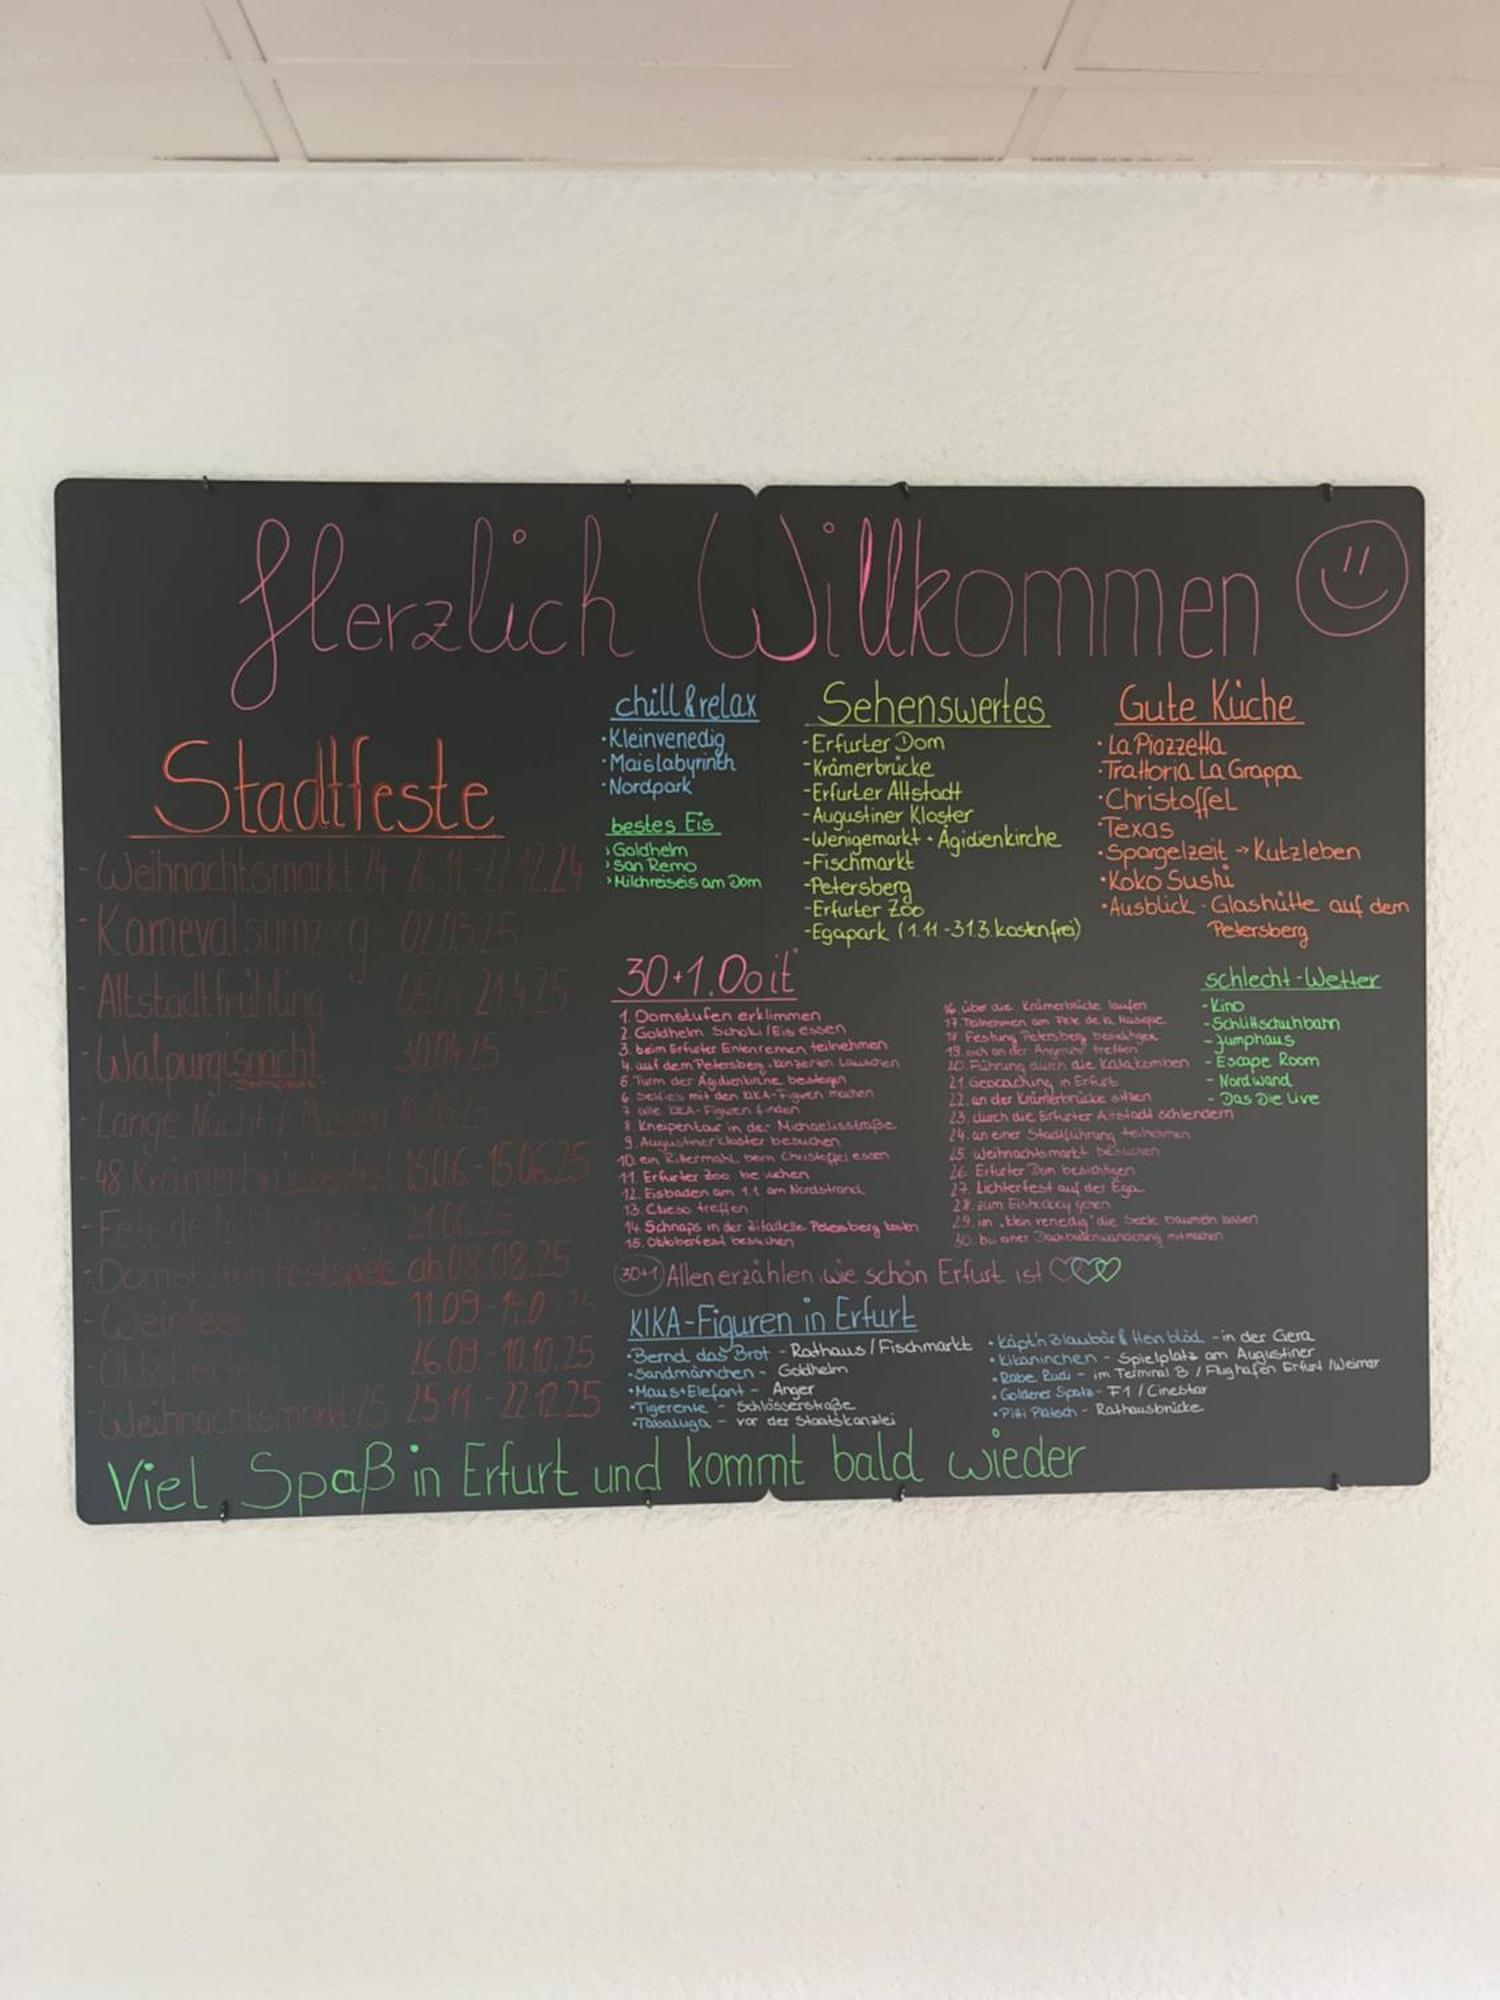 Herzlich Willkommen
Stadtfeste
- Weihnachtsmarkt 24 26.11.-22.12.24
- Karnevalsumzug 02.03.25
- Altstadtfrühling 21.4.25
- Walpurgisnacht 30.04.25
- Domplatz -
- Lange Nacht d. Museen
- 48. Krämerbrückenfest 13.06.-15.06.25
- Fete de la Musique 21.06.25
- Domstufenfestspiele ab 08.08.25
- Weinfest 11.09.-14.0
- Oktoberfest 26.09.-10.10.25
- Weihnachtsmarkt 25 25.11.-22.12.25
chill & relax
· Kleinvenedig
· Maislabyrinth
· Nordpark
bestes Eis
› Goldhelm
› San Remo
› Milchreiseis am Dom
Sehenswertes
- Erfurter Dom
- Krämerbrücke
- Erfurter Altstadt
- Augustiner Kloster
- Wenigemarkt + Ägidienkirche
- Fischmarkt
- Petersberg
- Erfurter Zoo
- Egapark (1.11.-31.3. kostenfrei)
Gute Küche
· La Piazzetta
· Trattoria La Grappa
· Christoffel
· Texas
· Spargelzeit → Kutzleben
· Koko Sushi
· Ausblick - Glashütte auf dem
Petersberg
30+1. Do it
1. Domstufen erklimmen
2. Goldhelm Schoki/Eis essen
3. beim Erfurter Entenrennen teilnehmen
4. auf dem Petersberg Konzerten lauschen
5. Turm der Ägidienkirche besteigen
6. Selfies mit den KIKA-Figuren machen
7. alle KIKA-Figuren finden
8. Kneipentour in der Michaelisstraße
9. Augustinerkloster besuchen
10. ein Rittermahl beim Christoffel essen
11. Erfurter Zoo besuchen
12. Eisbaden am 1.1. am Nordstrand
13. Clueso treffen
14. Schnaps in der Zitadelle Petersberg kosten
15. Oktoberfest besuchen
16. über die Krämerbrücke laufen
17. Teilnehmen am Fete de la Musique
18. Festung Petersberg besichtigen
19. sich an der Angeruhr treffen
20. Führung durch die Katakomben
21. Geocaching in Erfurt
22. an der Krämerbrücke sitzen
23. durch die Erfurter Altstadt schlendern
24. an einer Stadtführung teilnehmen
25. Weihnachtsmarkt besuchen
26. Erfurter Dom besichtigen
27. Lichterfest auf der Ega
28. zum Eishockey gehen
29. im "klein venedig" die Seele baumeln lassen
30. bei einer Dachbodenwanderung mitmachen
30+1 Allen erzählen, wie schön Erfurt ist
schlecht-Wetter
- Kino
- Schlittschuhbahn
- Jumphaus
- Escape Room
- Nordwand
- Das Die Live
KIKA-Figuren in Erfurt
· Bernd das Brot - Rathaus/Fischmarkt
· Sandmännchen - Goldhelm
· Maus+Elefant - Anger
· Tigerente - Schlösserstraße
· Tabaluga - vor der Staatskanzlei
· Käpt'n Blaubär & Hein blöd - in der Gera
· Kikaninchen - Spielplatz am Augustiner
· Rabe Rudi - im Terminal B / Flughafen Erfurt/Weimar
· Goldener Spatz - F1/Cinestar
· Pitti Platsch - Rathausbrücke
Viel Spaß in Erfurt und kommt bald wieder